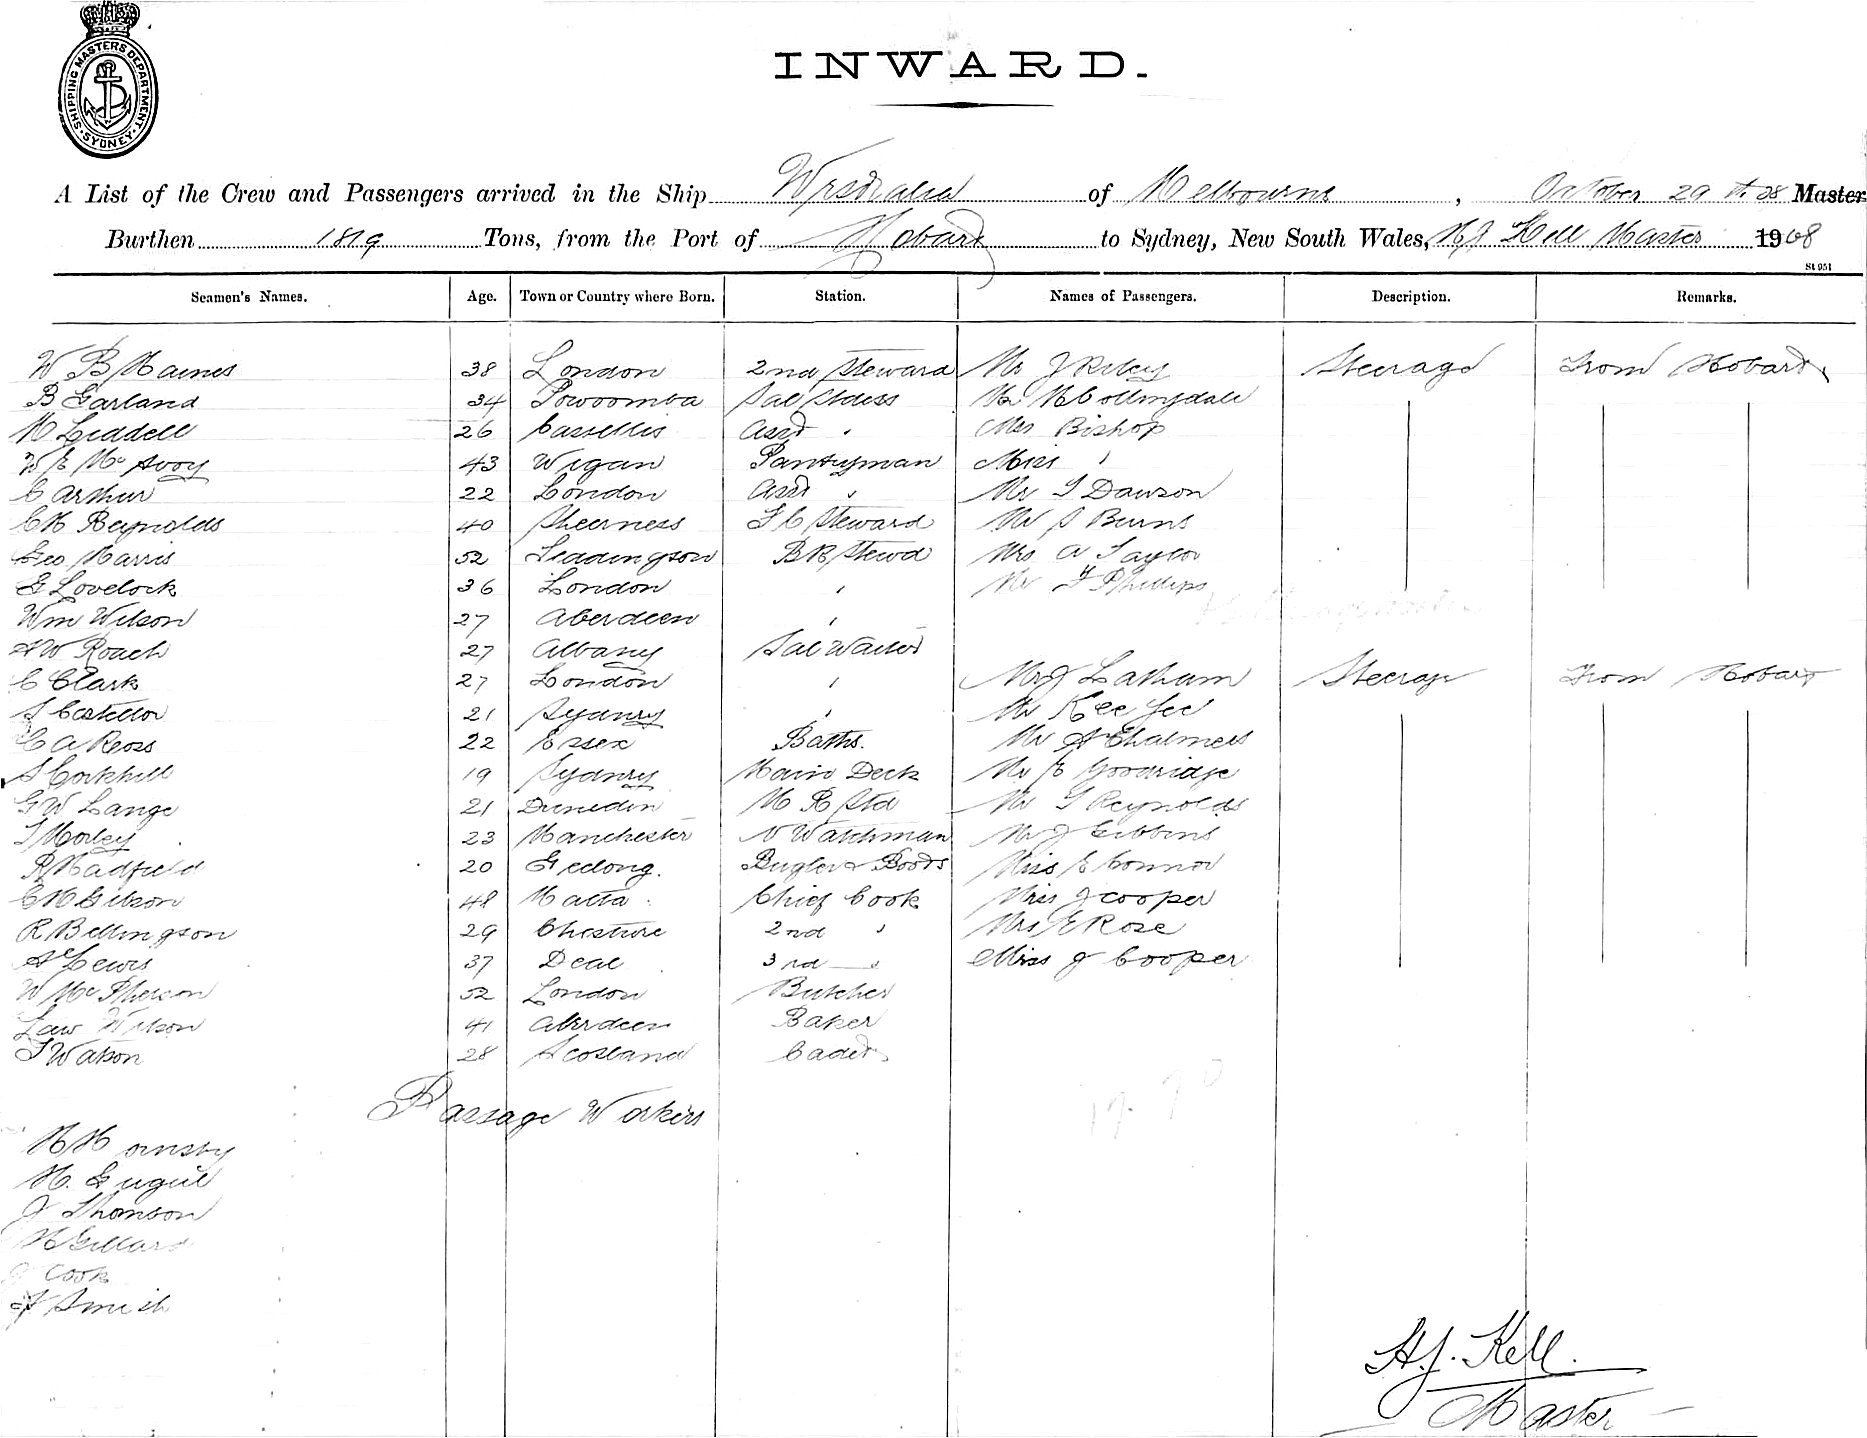 SHIPPING MASTERS DEPARTMENT · SYDNEY ·
INWARD.
A List of the Crew and Passengers arrived in the Ship Westralia of Melbourne, October 29th 08 Master
Burthen 1819 Tons, from the Port of Hobart to Sydney, New South Wales, H J Kell Master 1908
St 951
Seamen's Names. Age. Town or Country where Born. Station. Names of Passengers. Description. Remarks.
W B Haines 38 London 2nd Steward Mr J Riley Steerage From Hobart
B Garland 34 Towoomba Sal Stdess Mr H Collingdale
M Liddell 26 Asst " Mrs Bishop
W E Mc Avoy 43 Wigan Pantryman Miss "
C Arthur 22 London Asst " Mr T Dawson
C H Reynolds 40 Sheerness F C Steward Mr S Burns
Geo Harris 52 Teddington B R Stewd Mrs A Taylor
G Lovelock 36 London " Mr F Phillips
Wm Wilson 27 Aberdeen "
A W Roach 27 Albany Sal Waiter
C Clark 27 London " Mr J Latham Steerage From Hobart
S Costello 21 Sydney " Mr Kee Lee
C A Reoss 22 Essex Baths. Mr A Chalmers
S Corkhill 19 Sydney Main Deck Mr E Goodridge
G W Lange 21 Dunedin M R Std Mr T Reynolds
T Morley 23 Manchester N Watchman Mr J Gibbins
R Hadfield 20 Geelong. Bugler & Boots Miss E Connor
C H Gibson 48 Malta. Chief Cook Miss J Cooper
R Bellingson 29 Cheshire 2nd " Mrs E Rose
A Lewis 37 Deal 3rd " Miss J Cooper
W Mc Pherson 52 London Butcher
Law Wilson 41 Aberdeen Baker
T Watson 28 Scotland Cadet.
Passage Workers
H Hornsby
H.
J Thomson
H Gillard
J Cook
J Smith
H.J. Kell.
Master